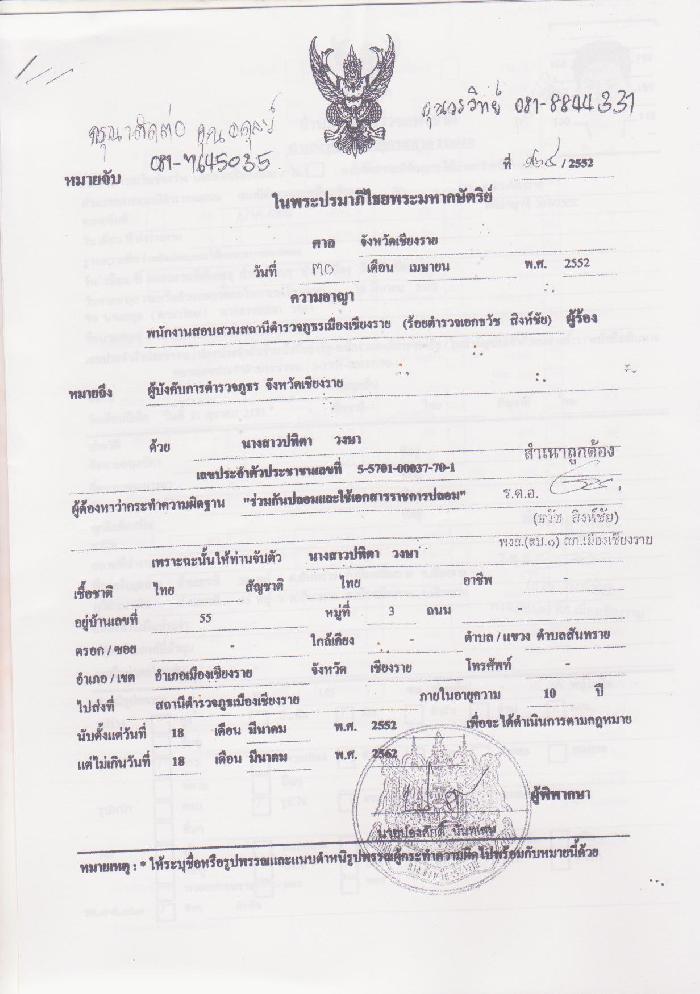 คุณวรวิทย์ 081-8844331
กรุณาติดต่อ คุณอดุลย์
081-7645035
หมายจับ
ที่ ๔๒๘ / 2552
ในพระปรมาภิไธยพระมหากษัตริย์
ศาล จังหวัดเชียงราย
วันที่ ๓๐ เดือน เมษายน พ.ศ. 2552
ความอาญา
พนักงานสอบสวนสถานีตำรวจภูธรเมืองเชียงราย (ร้อยตำรวจเอกธวัช สิงห์ชัย) ผู้ร้อง
หมายถึง ผู้บังคับการตำรวจภูธร จังหวัดเชียงราย
ด้วย นางสาวปพิตา วงษา
สำเนาถูกต้อง
เลขประจำตัวประชาชนเลขที่ 5-5701-00037-70-1
ผู้ต้องหาว่ากระทำความผิดฐาน "ร่วมกันปลอมและใช้เอกสารราชการปลอม"
ร.ต.อ.
(ธวัช สิงห์ชัย)
พงส.(สบ.๑) สภ.เมืองเชียงราย
เพราะฉะนั้นให้ท่านจับตัว นางสาวปพิตา วงษา
เชื้อชาติ ไทย สัญชาติ ไทย อาชีพ -
อยู่บ้านเลขที่ 55 หมู่ที่ 3 ถนน -
ตรอก / ซอย - ใกล้เคียง - ตำบล / แขวง ตำบลสันทราย
อำเภอ / เขต อำเภอเมืองเชียงราย จังหวัด เชียงราย โทรศัพท์ -
ไปส่งที่ สถานีตำรวจภูธรเมืองเชียงราย ภายในอายุความ 10 ปี
นับตั้งแต่วันที่ 18 เดือน มีนาคม พ.ศ. 2552 เพื่อจะได้ดำเนินการตามกฎหมาย
แต่ไม่เกินวันที่ 18 เดือน มีนาคม พ.ศ. 2562
ผู้พิพากษา
หมายเหตุ : * ให้ระบุชื่อหรือรูปพรรณและแนบตำหนิรูปพรรณผู้กระทำความผิดไปพร้อมกับหมายนี้ด้วย